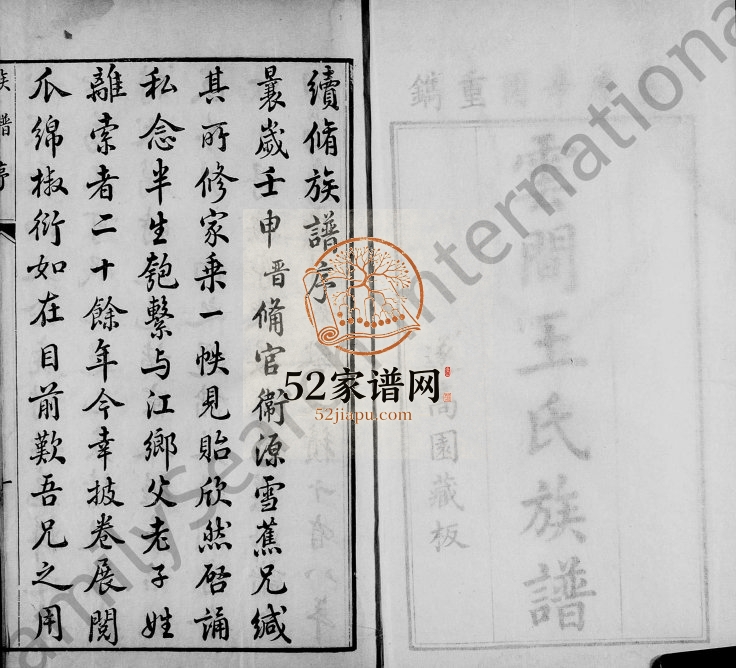 重鐫
雲間王氏族譜
園藏板
續脩族譜序
曩歲壬申晋脩官衛源雪蕉兄緘
其所修家乗一帙見貽欣然啓誦
私念半生匏繫与江鄉父老子姓
離索者二十餘年今幸披卷展閱
瓜綿椒衍如在目前歎吾兄之用
族譜序
52家谱网
52jiapu.com
FamilySearch International